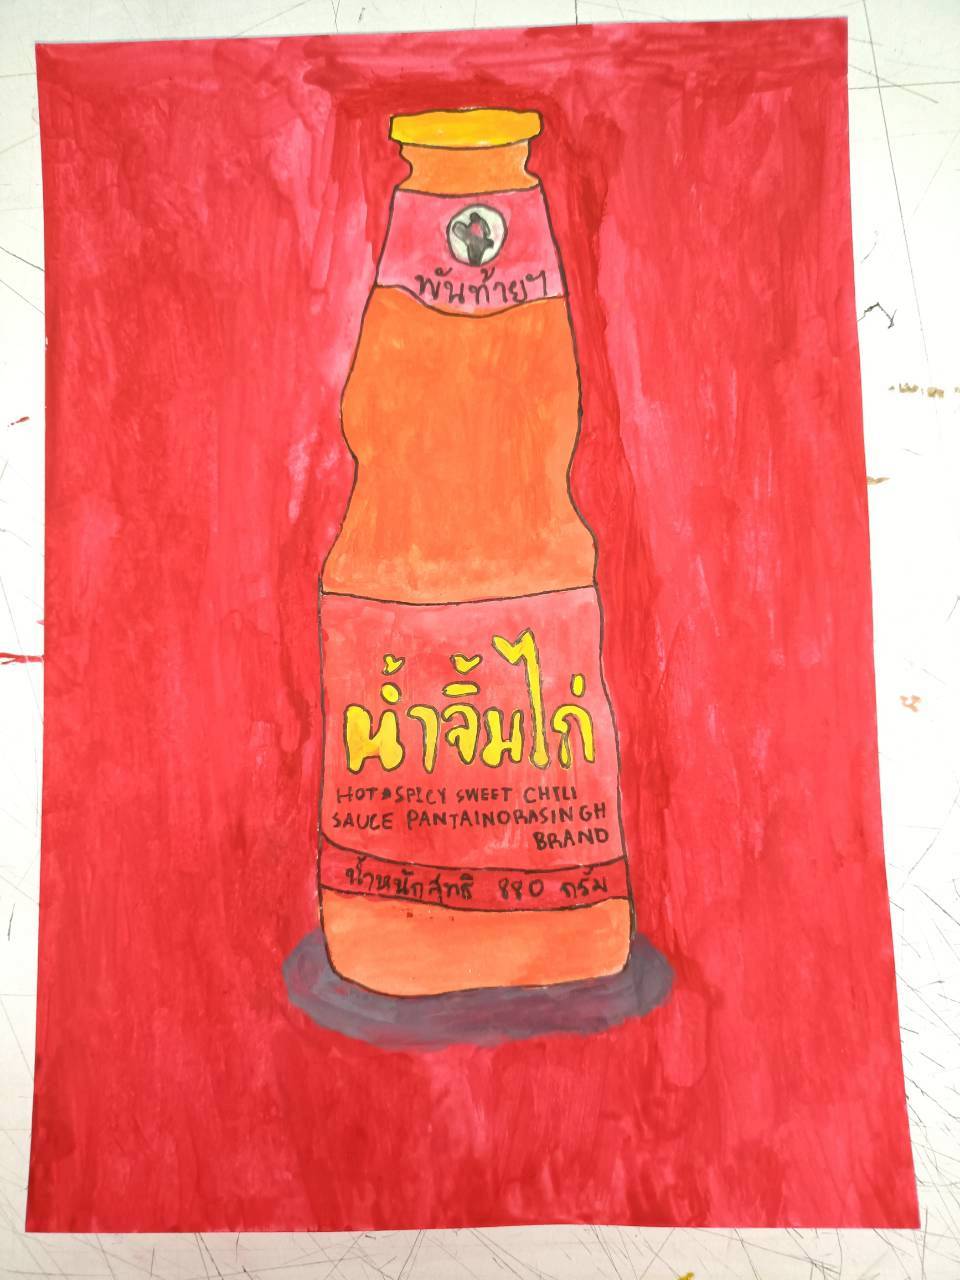 พันท้ายฯ
น้ำจิ้มไก่
HOT & SPICY SWEET CHILI
SAUCE PANTAINORASINGH
BRAND
น้ำหนักสุทธิ 880 กรัม